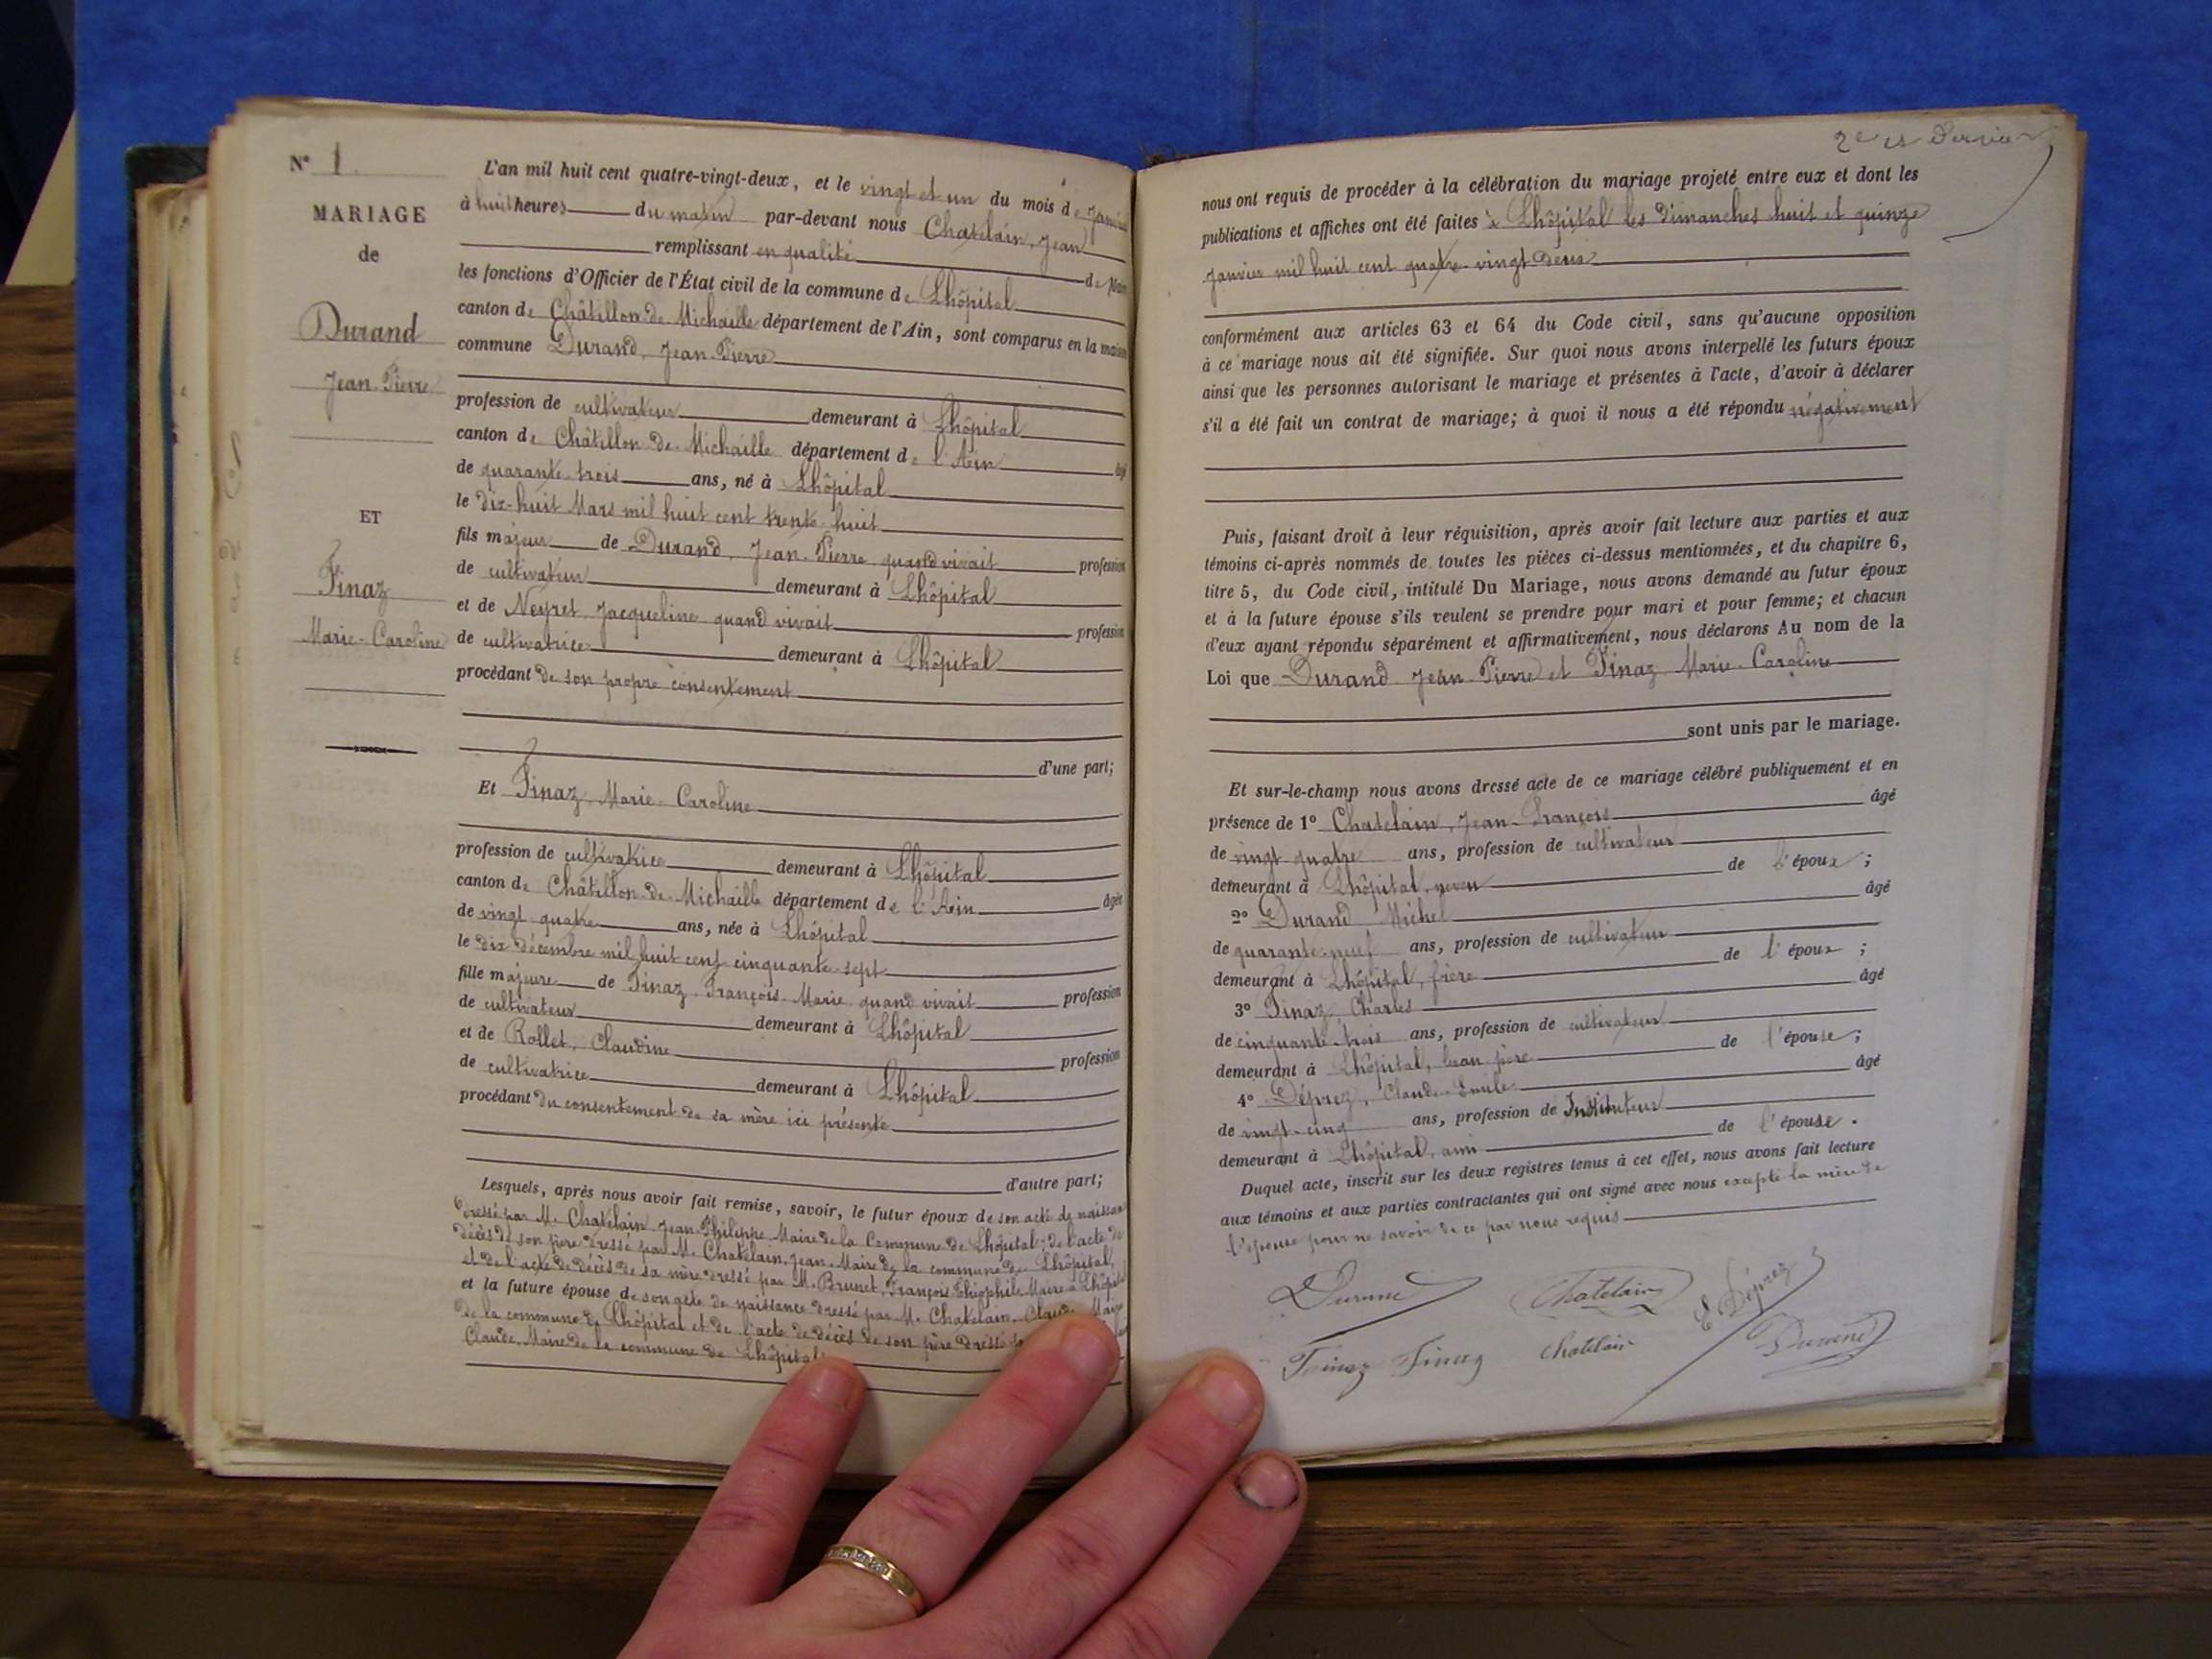 N° 1.
MARIAGE
de
Durand
Jean-Pierre
ET
Finaz
Marie-Caroline
L'an mil huit cent quatre-vingt-deux, et le vingt et un du mois de Janvier
à huit heures du matin par-devant nous Chatelain, Jean
remplissant en qualité de Maire
les fonctions d'Officier de l'État civil de la commune de Lhôpital
canton de Châtillon-de-Michaille département de l'Ain, sont comparus en la maison
commune Durand, Jean-Pierre
profession de cultivateur demeurant à Lhôpital
canton de Châtillon-de-Michaille département de l'Ain âgé
de quarante-trois ans, né à Lhôpital
le dix-huit Mars mil huit cent trente-huit
fils majeur de Durand, Jean-Pierre quand vivait profession
de cultivateur demeurant à Lhôpital
et de Neyret, Jacqueline quand vivait profession
de cultivatrice demeurant à Lhôpital
procédant de son propre consentement
d'une part;
Et Finaz, Marie-Caroline
profession de cultivatrice demeurant à Lhôpital
canton de Châtillon-de-Michaille département de l'Ain âgée
de vingt-quatre ans, née à Lhôpital
le dix décembre mil huit cent cinquante-sept
fille majeure de Finaz, François-Marie quand vivait profession
de cultivateur demeurant à Lhôpital
et de Rollet, Claudine profession
de cultivatrice demeurant à Lhôpital
procédant du consentement de sa mère ici présente
d'autre part;
Lesquels, après nous avoir fait remise, savoir, le futur époux de son acte de naissance
dressé par M. Chatelain Jean-Philippe, Maire de la Commune de Lhôpital; de l'acte de
décès de son père dressé par M. Chatelain, Jean, Maire de la commune de Lhôpital,
et de l'acte de décès de sa mère dressé par M. Brunet, François Théophile Maire à Lhôpital
et la future épouse de son acte de naissance dressé par M. Chatelain, Claude, Maire
de la commune de Lhôpital et de l'acte de décès de son père dressé
Claude, Maire de la commune de Lhôpital
2e et Dernier
nous ont requis de procéder à la célébration du mariage projeté entre eux et dont les
publications et affiches ont été faites à Lhôpital les dimanches huit et quinze
Janvier mil huit cent quatre-vingt-deux
conformément aux articles 63 et 64 du Code civil, sans qu'aucune opposition
à ce mariage nous ait été signifiée. Sur quoi nous avons interpellé les futurs époux
ainsi que les personnes autorisant le mariage et présentes à l'acte, d'avoir à déclarer
s'il a été fait un contrat de mariage; à quoi il nous a été répondu négativement
Puis, faisant droit à leur réquisition, après avoir fait lecture aux parties et aux
témoins ci-après nommés de toutes les pièces ci-dessus mentionnées, et du chapitre 6,
titre 5, du Code civil, intitulé Du Mariage, nous avons demandé au futur époux
et à la future épouse s'ils veulent se prendre pour mari et pour femme; et chacun
d'eux ayant répondu séparément et affirmativement, nous déclarons Au nom de la
Loi que Durand Jean-Pierre et Finaz Marie-Caroline
sont unis par le mariage.
Et sur-le-champ nous avons dressé acte de ce mariage célébré publiquement et en
présence de 1° Chatelain, Jean-François âgé
de vingt-quatre ans, profession de cultivateur
demeurant à Lhôpital, neveu de l'époux;
2° Durand Michel âgé
de quarante-neuf ans, profession de cultivateur
demeurant à Lhôpital, frère de l'époux;
3° Finaz, Charles âgé
de cinquante-trois ans, profession de cultivateur
demeurant à Lhôpital, beau père de l'épouse;
4° Déprez, Claude-Emile âgé
de vingt-cinq ans, profession de Instituteur
demeurant à Lhôpital, ami de l'épouse.
Duquel acte, inscrit sur les deux registres tenus à cet effet, nous avons fait lecture
aux témoins et aux parties contractantes qui ont signé avec nous excepté la mère de
l'épouse pour ne savoir de ce par nous requis
Durand Chatelain E. Déprez
Finaz Finaz Chatelain Durand